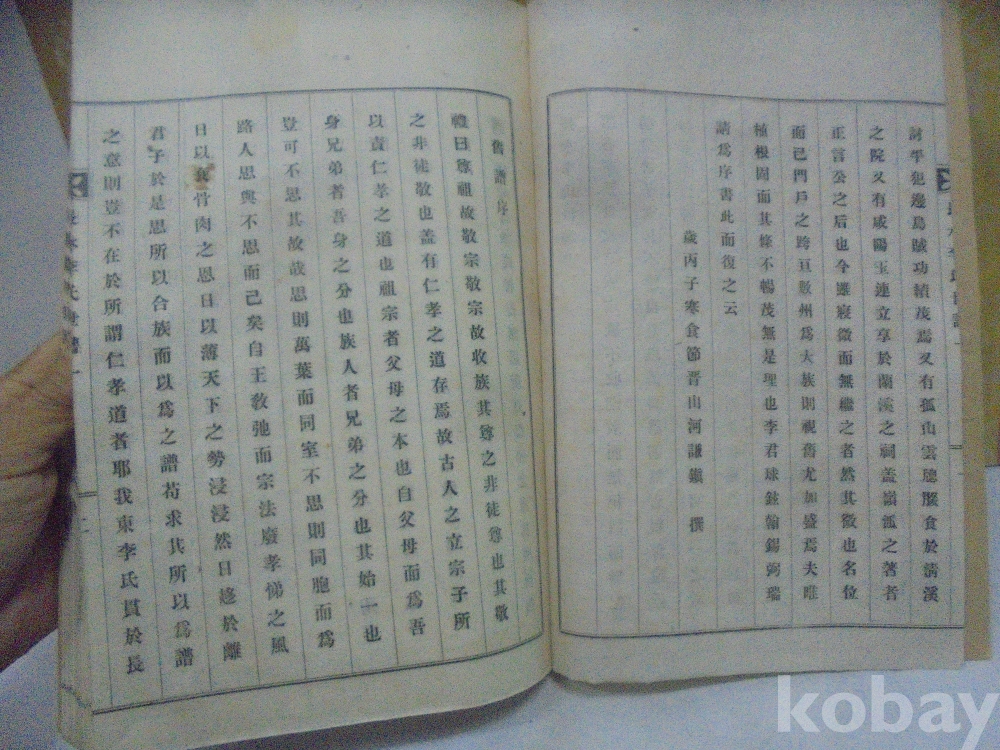 討平犯邊島賊功績茂焉又有孤山雲聰腏食於淸溪
之院又有咸陽玉連立享於蘭溪之祠盖嶺湖之著者
正言公之后也今雖寖微而無繼之者然其微也名位
而已門戶之跨亘數州爲大族則視舊尤加盛焉夫唯
植根固而其條不暢茂無是理也李君球鉉翰錫弼瑞
請爲序書此而復之云
歲丙子寒食節晋山河謙鎭 撰
舊譜序
禮曰尊祖故敬宗敬宗故收族其尊之非徒尊也其敬
之非徒敬也盖有仁孝之道存焉故古人之立宗子所
以責仁孝之道也祖宗者父母之本也自父母而爲吾
身兄弟者吾身之分也族人者兄弟之分也其始一也
豈可不思其故故思則萬葉而同室不思則同胞而爲
路人思與不思而己矣自王敎弛而宗法廢孝悌之風
日以衰骨肉之恩日以薄天下之勢浸浸然日趍於離
君子於是思所以合族而以爲之譜苟求其所以爲譜
之意則豈不在於所謂仁孝道者耶我東李氏貫於長
二
kobay